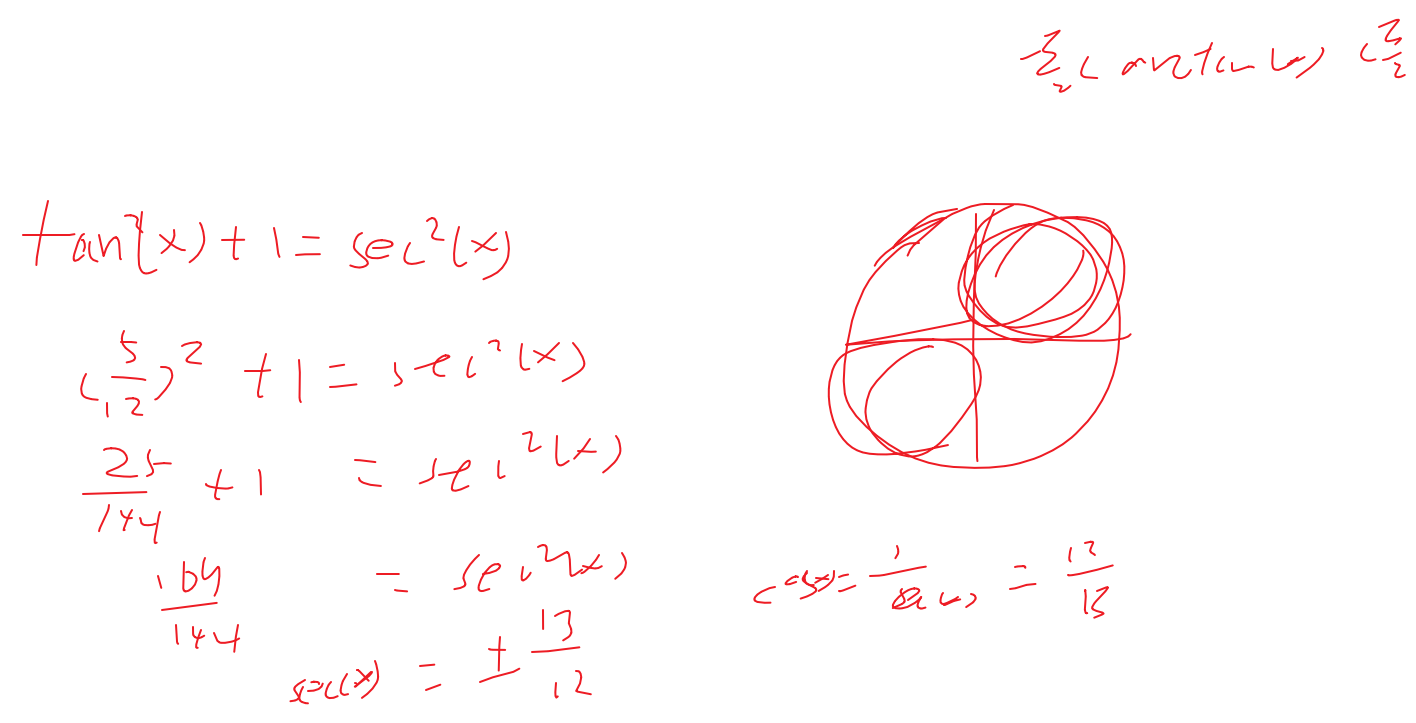 π/2 < arctan(x) < π/2
tan²(x) + 1 = sec²(x)
(5/12)² + 1 = sec²(x)
25/144 + 1 = sec²(x)
169/144 = sec²(x)
cos(x) = 1/sec(x) = 12/13
sec(x) = ± 13/12